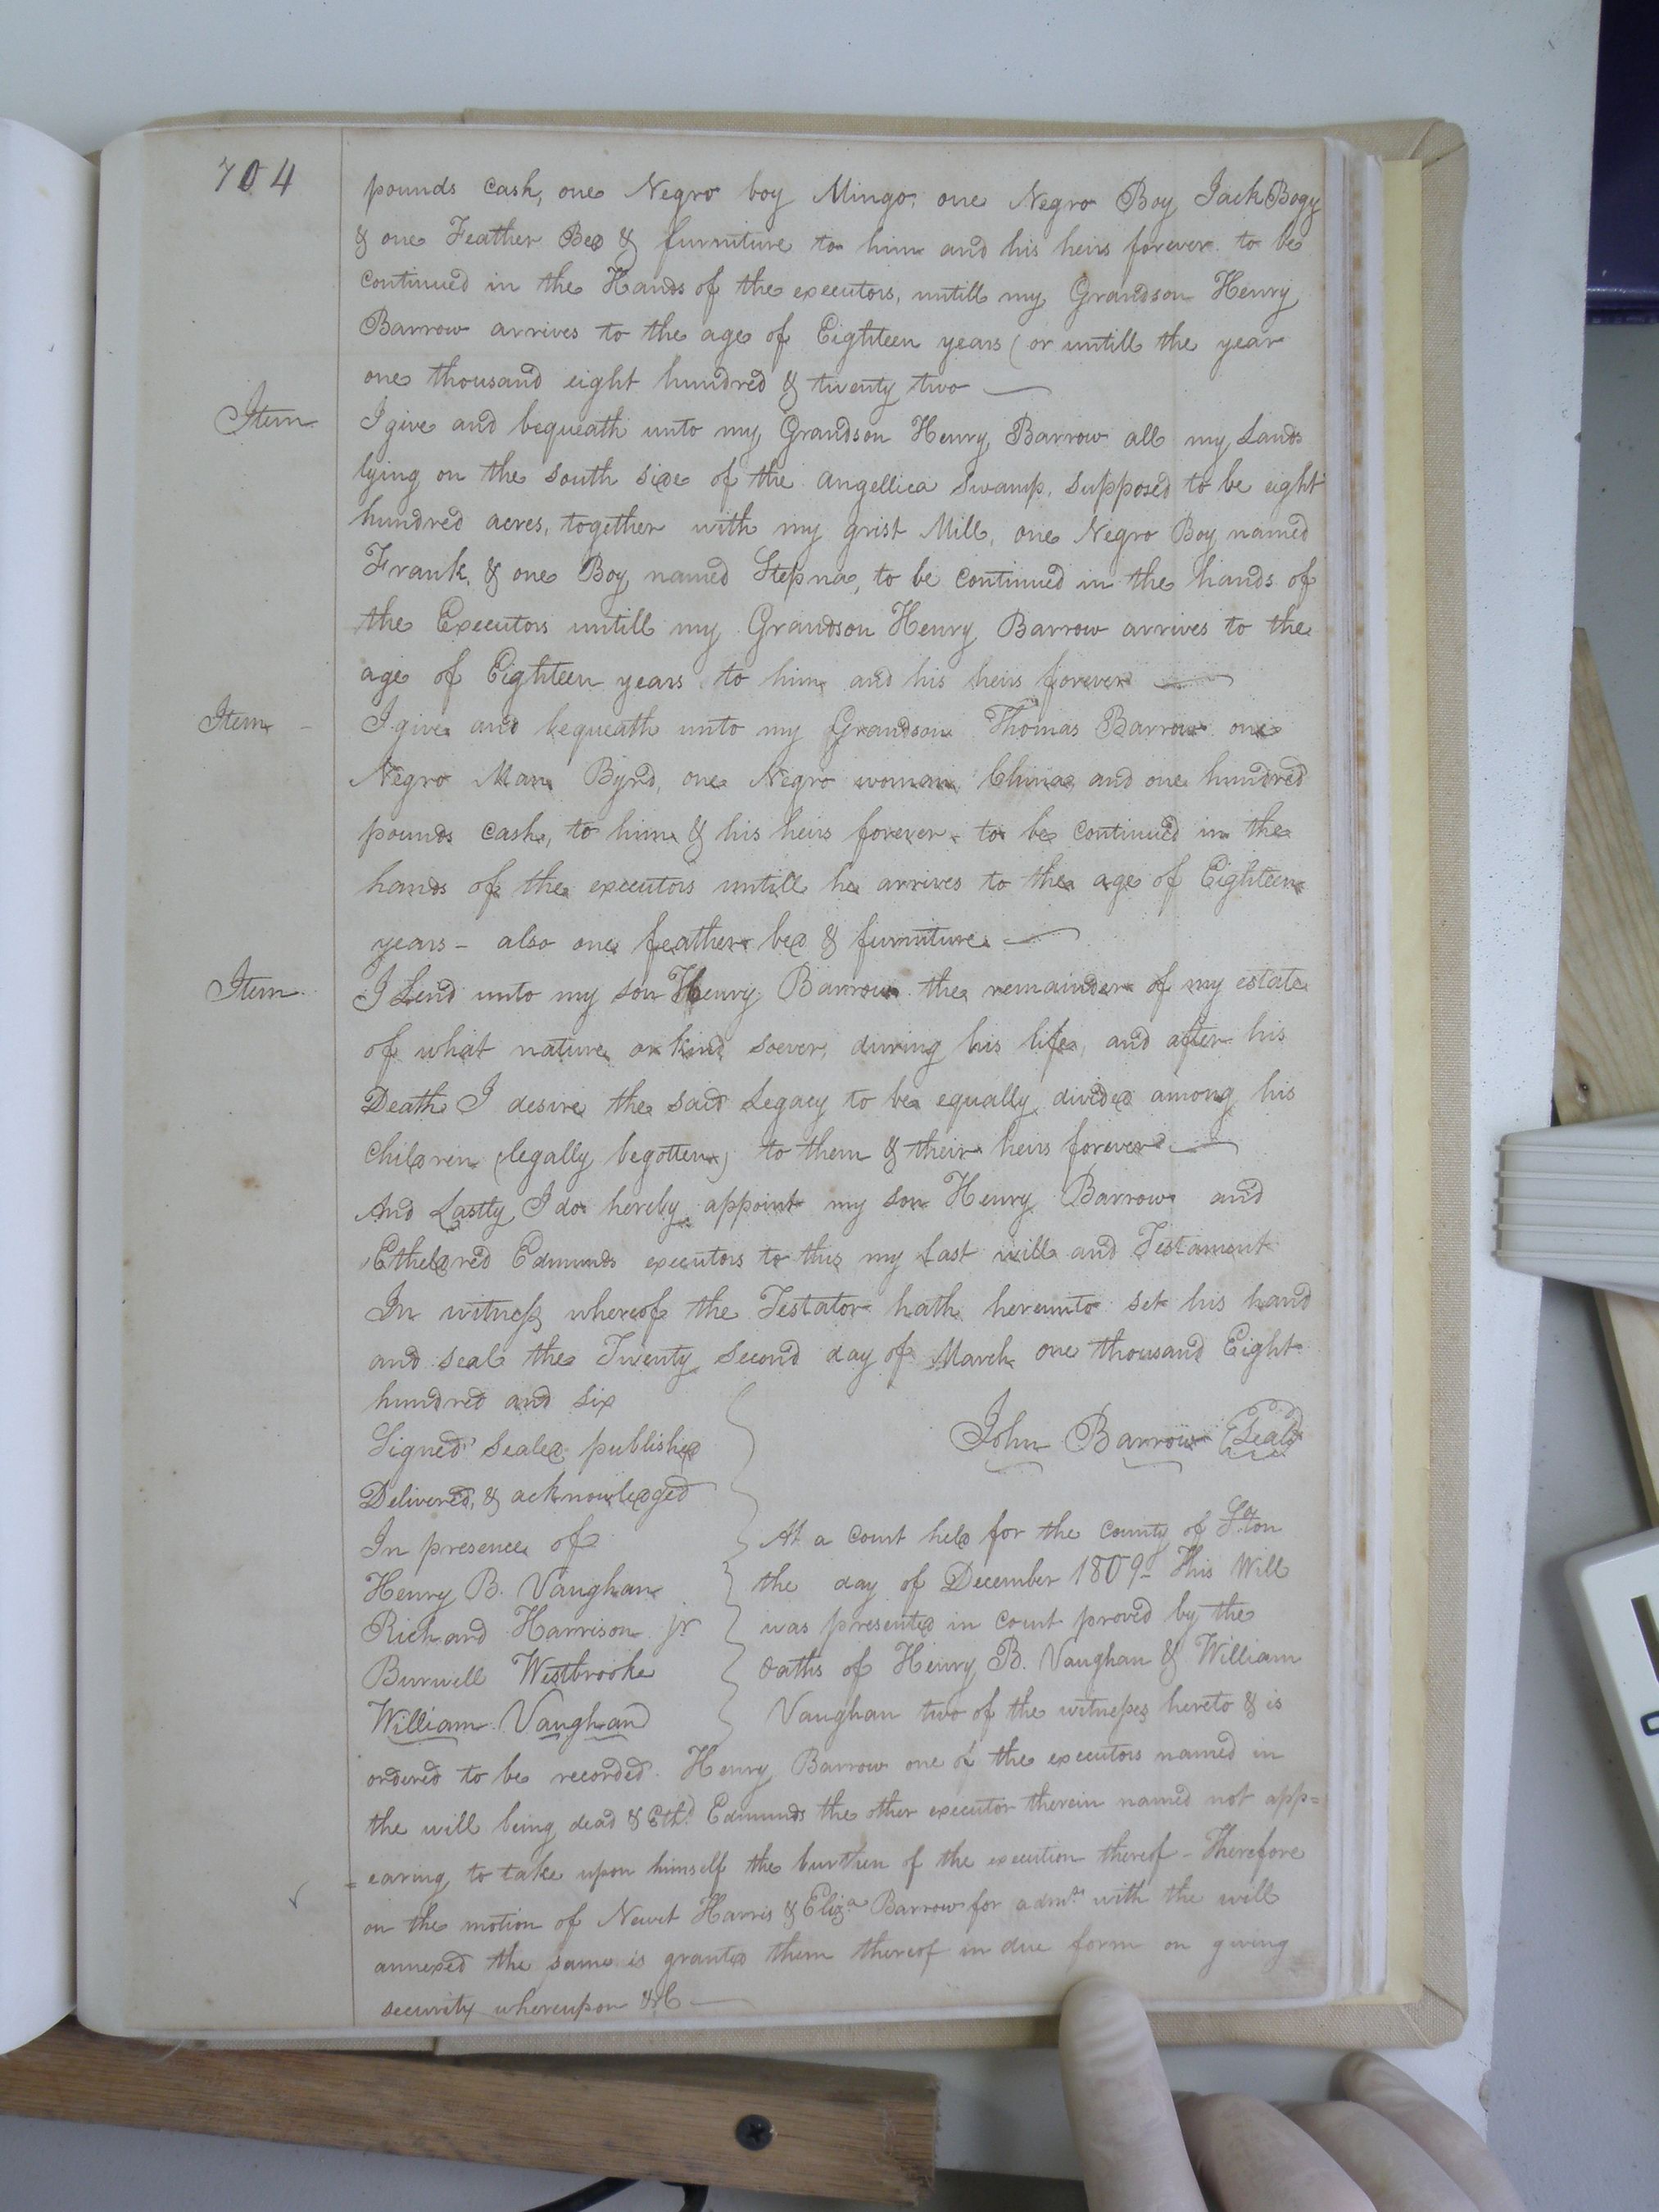 704
pounds cash, one Negro boy Mingo, one Negro Boy Jack Bogy
& one Feather Bed & furniture to him and his heirs forever to be
continued in the Hands of the executors, untill my Grandson Henry
Barrow arrives to the age of Eighteen years (or untill the year
one thousand eight hundred & twenty two —
Item I give and bequeath unto my Grandson Henry Barrow all my Lands
lying on the south side of the Angellica Swamp, supposed to be eight
hundred acres, together with my grist Mill, one Negro Boy named
Frank, & one Boy named Stepna, to be continued in the hands of
the Executors untill my Grandson Henry Barrow arrives to the
age of Eighteen years to him and his heirs forever —
Item – I give and bequeath unto my Grandson Thomas Barrow one
Negro Man Byrd, one Negro woman China, and one hundred
pounds cash, to him & his heirs forever – to be continued in the
hands of the executors untill he arrives to the age of Eighteen
years – also one feather bed & furniture —
Item I Lend unto my son Henry Barrow the remainder of my estate
of what nature or kind soever, during his life, and after his
Death I desire the said Legacy to be equally divided among his
children (legally begotten) to them & their heirs forever —
And Lastly I do hereby appoint my son Henry Barrow and
Etheldred Edmunds executors to this my last will and Testament
In witness whereof the Testator hath hereunto set his hand
and seal the Twenty second day of March one thousand Eight
hundred and six
John Barrow (Seal)
Signed Sealed published
Delivered, & acknowledged
In presence of
Henry B. Vaughan
Richard Harrison jr
Burwell Westbrooke
William Vaughan
At a Court held for the County of S.ºton
the day of December 1809 – This Will
was presented in court proved by the
oaths of Henry B. Vaughan & William
Vaughan two of the witnesses hereto & is
ordered to be recorded. Henry Barrow one of the executors named in
the will being dead & Eth.d Edmunds the other executor therein named not app=
=earing to take upon himself the burthen of the execution thereof – Therefore
on the motion of Newit Harris & Eliz.a Barrow for adm.n with the will
annexed the same is granted them thereof in due form on giving
security whereupon &C —